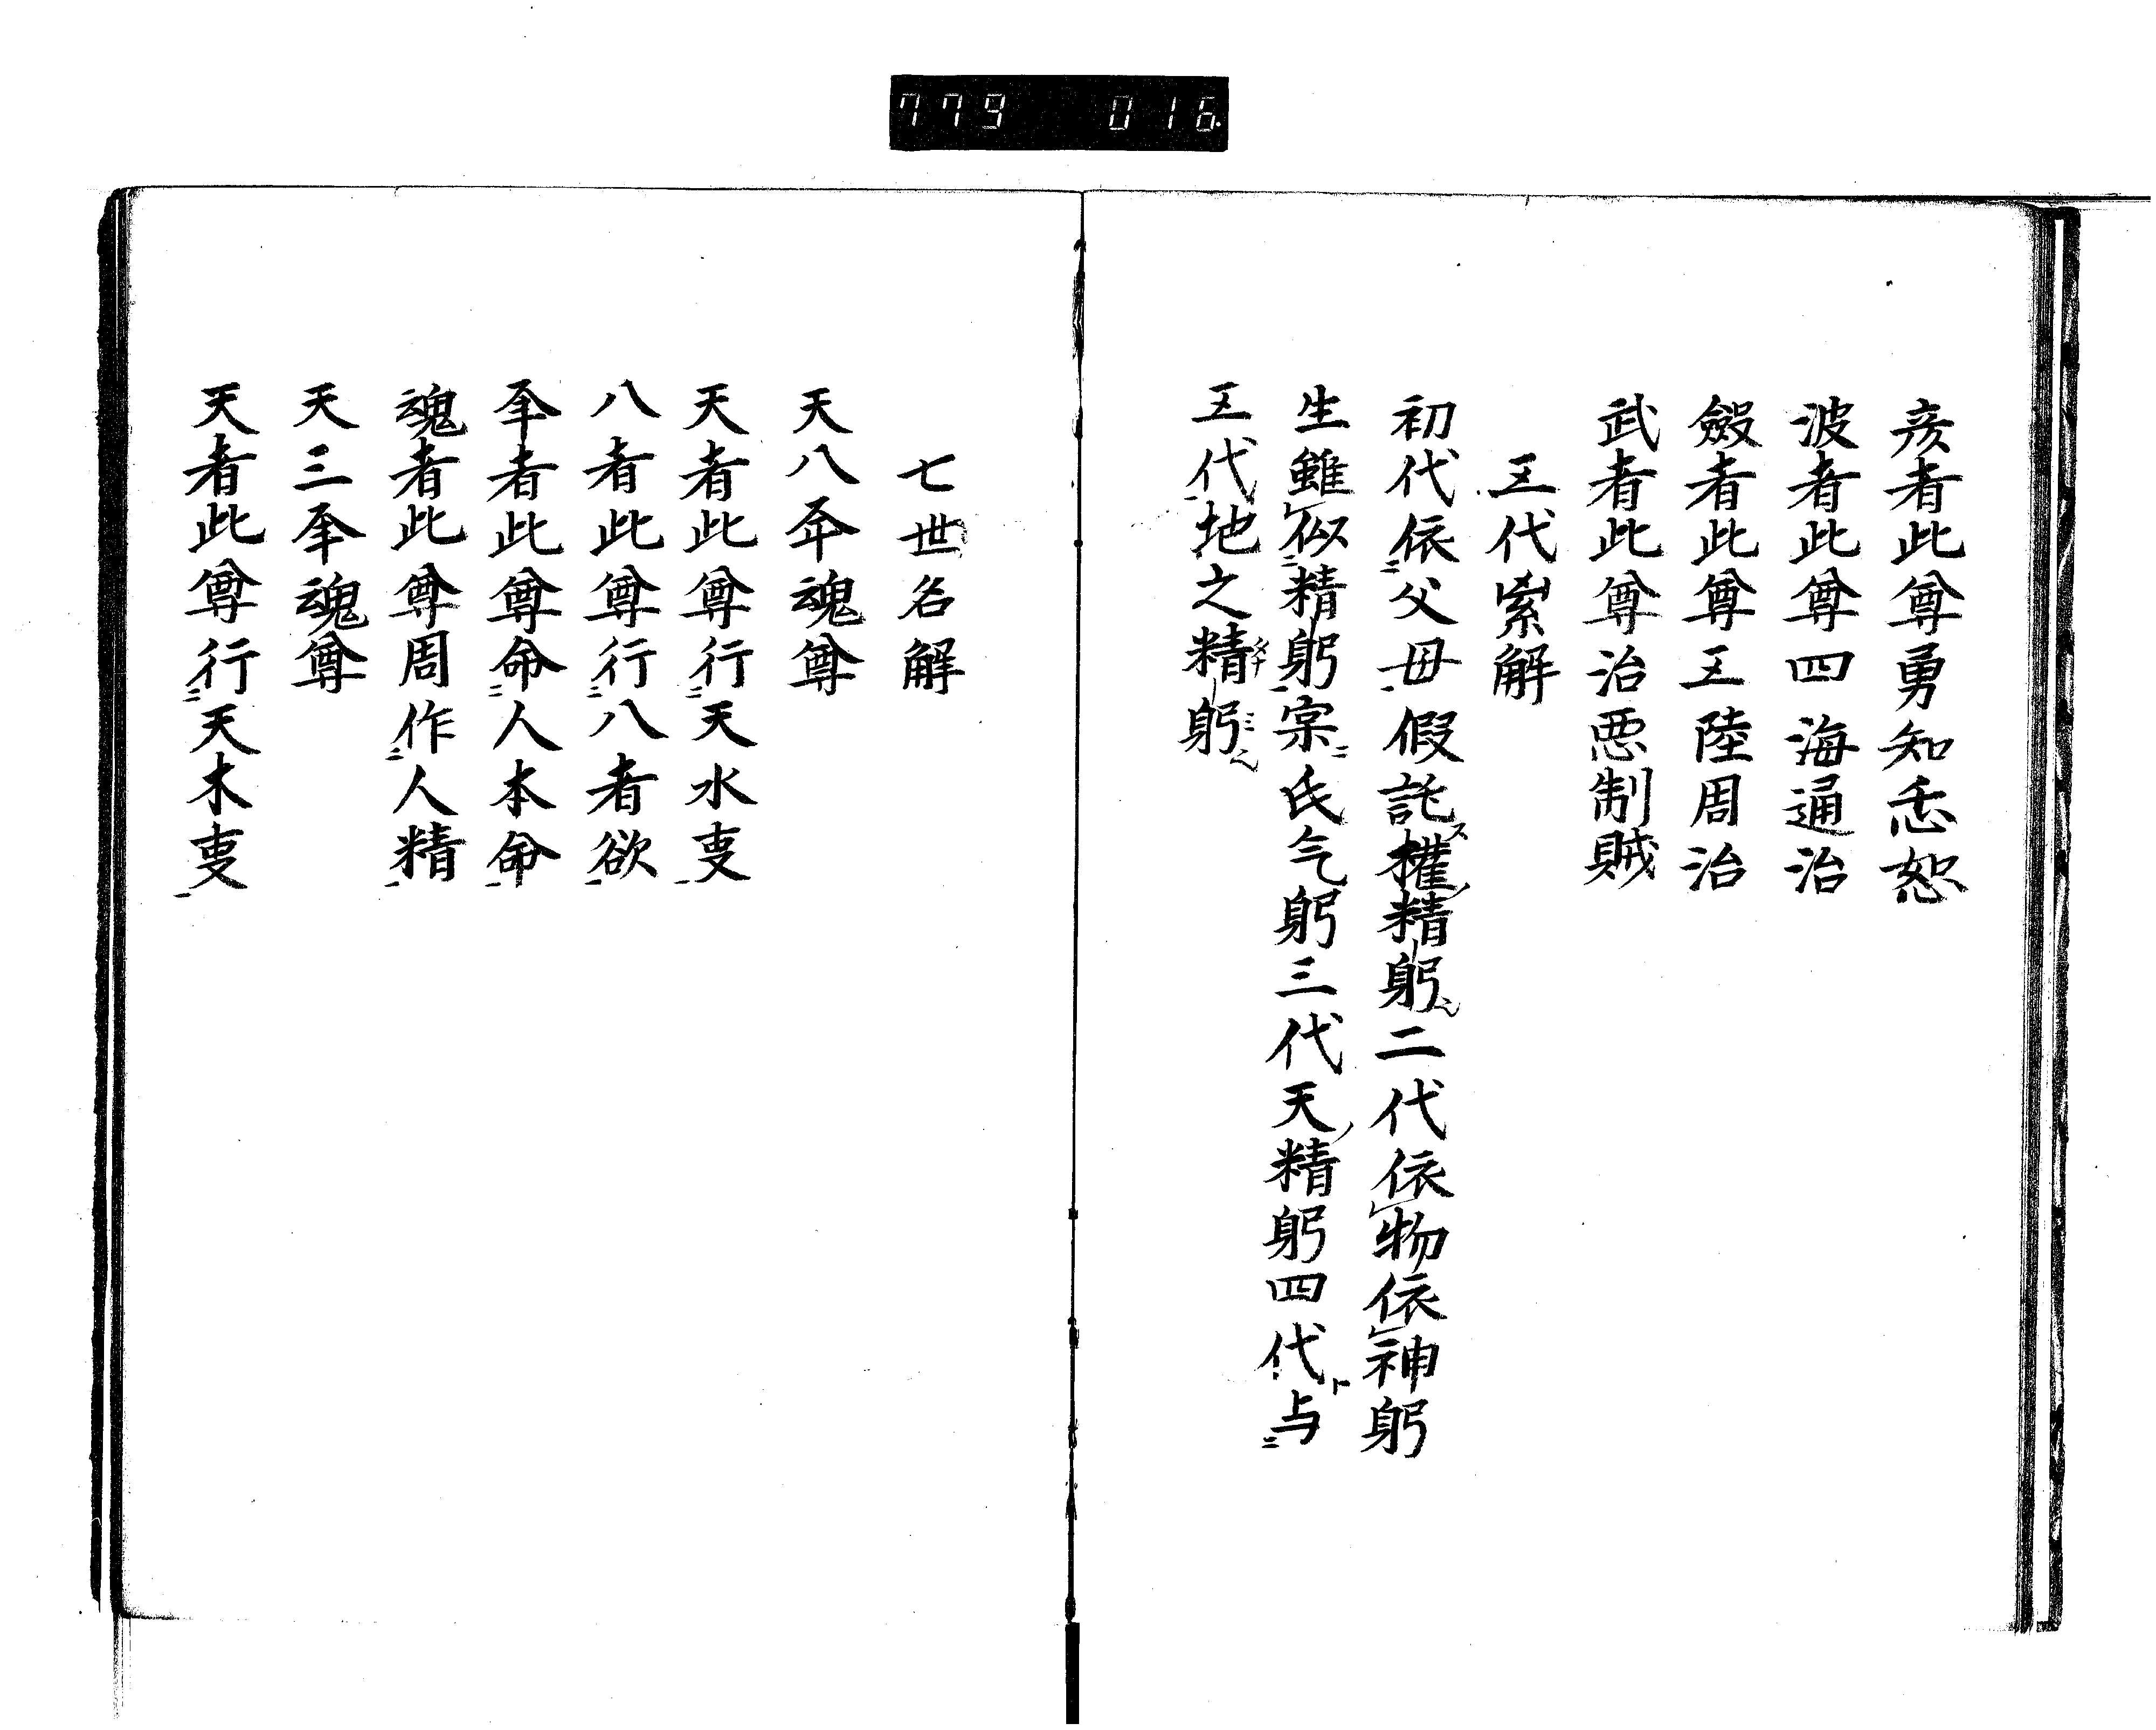 779 016
彦者此尊勇知恚恕
波者此尊四海通治
者此尊五陸周治
武者此尊治悪制賊
五代解
初代依父母假託權精躬二代依物依神躬
生雖似精躬宗氏气躬三代天精躬四代与
五代地之精躬
七世名解
天八年魂尊
天者此尊行天水叓
八者此尊行八者欲
年者此尊命人本命
魂者此尊周作人精
天三年魂尊
天者此尊行天木叓